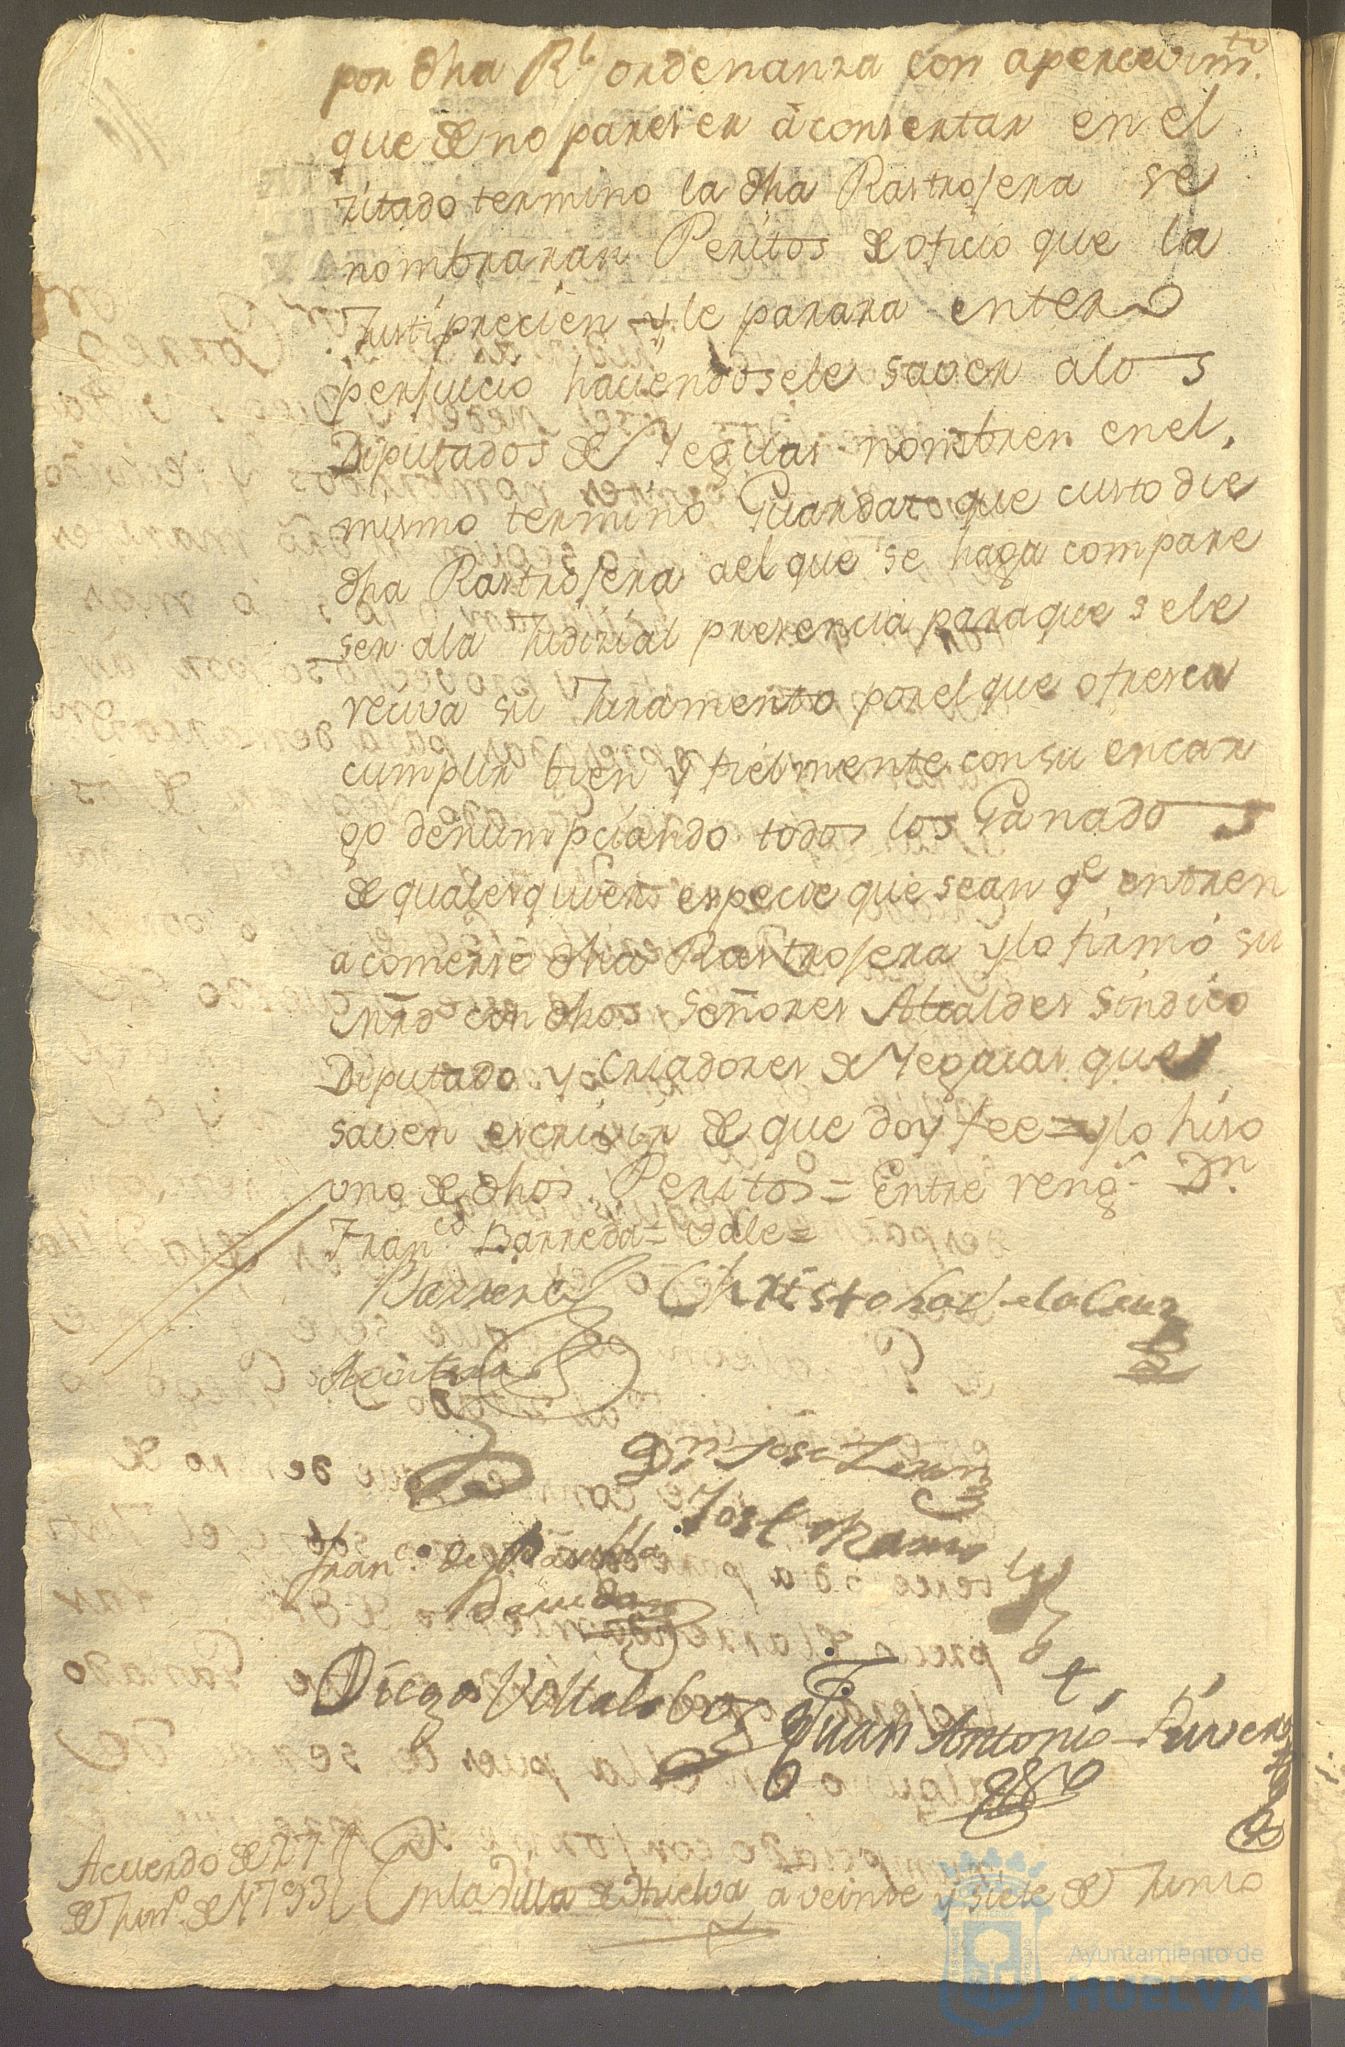 por dha Rl ordenanza con apercevimto.
que de no pareser à consertar en el
zitado termino la dha Rastrojera se
nombraran Peritos de oficio que la
Justiprecien y le parara entero
perjuicio haciendosele saver alos
Diputados de Yeguas nombren en el
mismo termino Guarda que custodie
dha Rastrojera ael que se haga compare
ser ala Judizial presencia para que sele
reciva su Juramento por el que ofresca
cumplir bien y fielmente con su encar
go denumpciando todos los Ganados
de qualesquiera especie que sean qe entren
a comerse dha Rastrojera y lo firmó su
mrd con dhos Señores Alcaldes Sindico
Diputado y Criadores de Yeguas que
saven escrivir de que doy fee = y lo hiso
uno de dhos Peritos = Entre rengs. Dn.
Franco. Barreda = Vale =
Barrera Christobal de la Cruz
Dn Jose
Jose Ramos
Franco. de Paula
Diego Villalobos
Juan Antonio Rivera
Acuerdo de 27
de Juno. de 1793
En la Villa de Huelva a veinte y siete de Junio
Ayuntamiento de
HUELVA